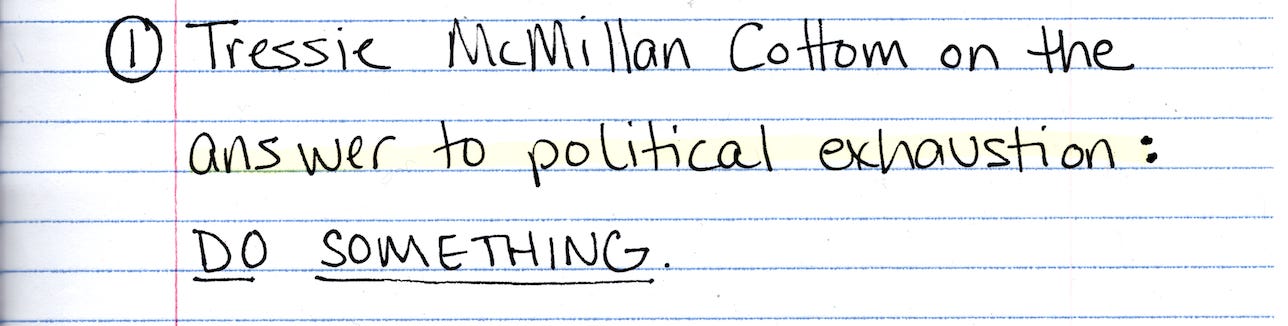 ① Tressie McMillan Cottom on the
answer to political exhaustion:
DO SOMETHING.